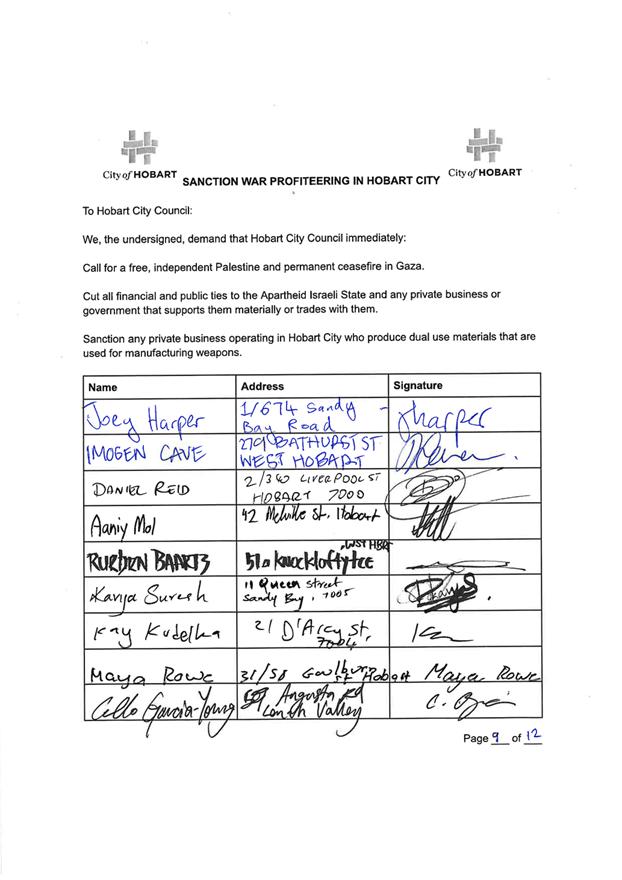 City of HOBART
SANCTION WAR PROFITEERING IN HOBART CITY
City of HOBART
To Hobart City Council:
We, the undersigned, demand that Hobart City Council immediately:
Call for a free, independent Palestine and permanent ceasefire in Gaza.
Cut all financial and public ties to the Apartheid Israeli State and any private business or
government that supports them materially or trades with them.
Sanction any private business operating in Hobart City who produce dual use materials that are
used for manufacturing weapons.
Name Address Signature
Joey Harper 1/674 Sandy Bay Road Jharper
IMOGEN CAVE BATHURST ST WEST HOBART
DANIEL REID 2/340 LIVERPOOL ST HOBART 7000
Aaniy Mol 42 Melville St. Hobart
BAARTZ 51a Knocklofty tce, WST HBRT
Kanya Suresh 11 Queen Street Sandy Bay, 7005
Kay Kudelka 21 D'Arcy St, 7004
Maya Rowe 31/58 Goulburn St Hobart Maya Rowe
Garcia-Young Augusta Rd Lenah Valley
Page 9 of 12